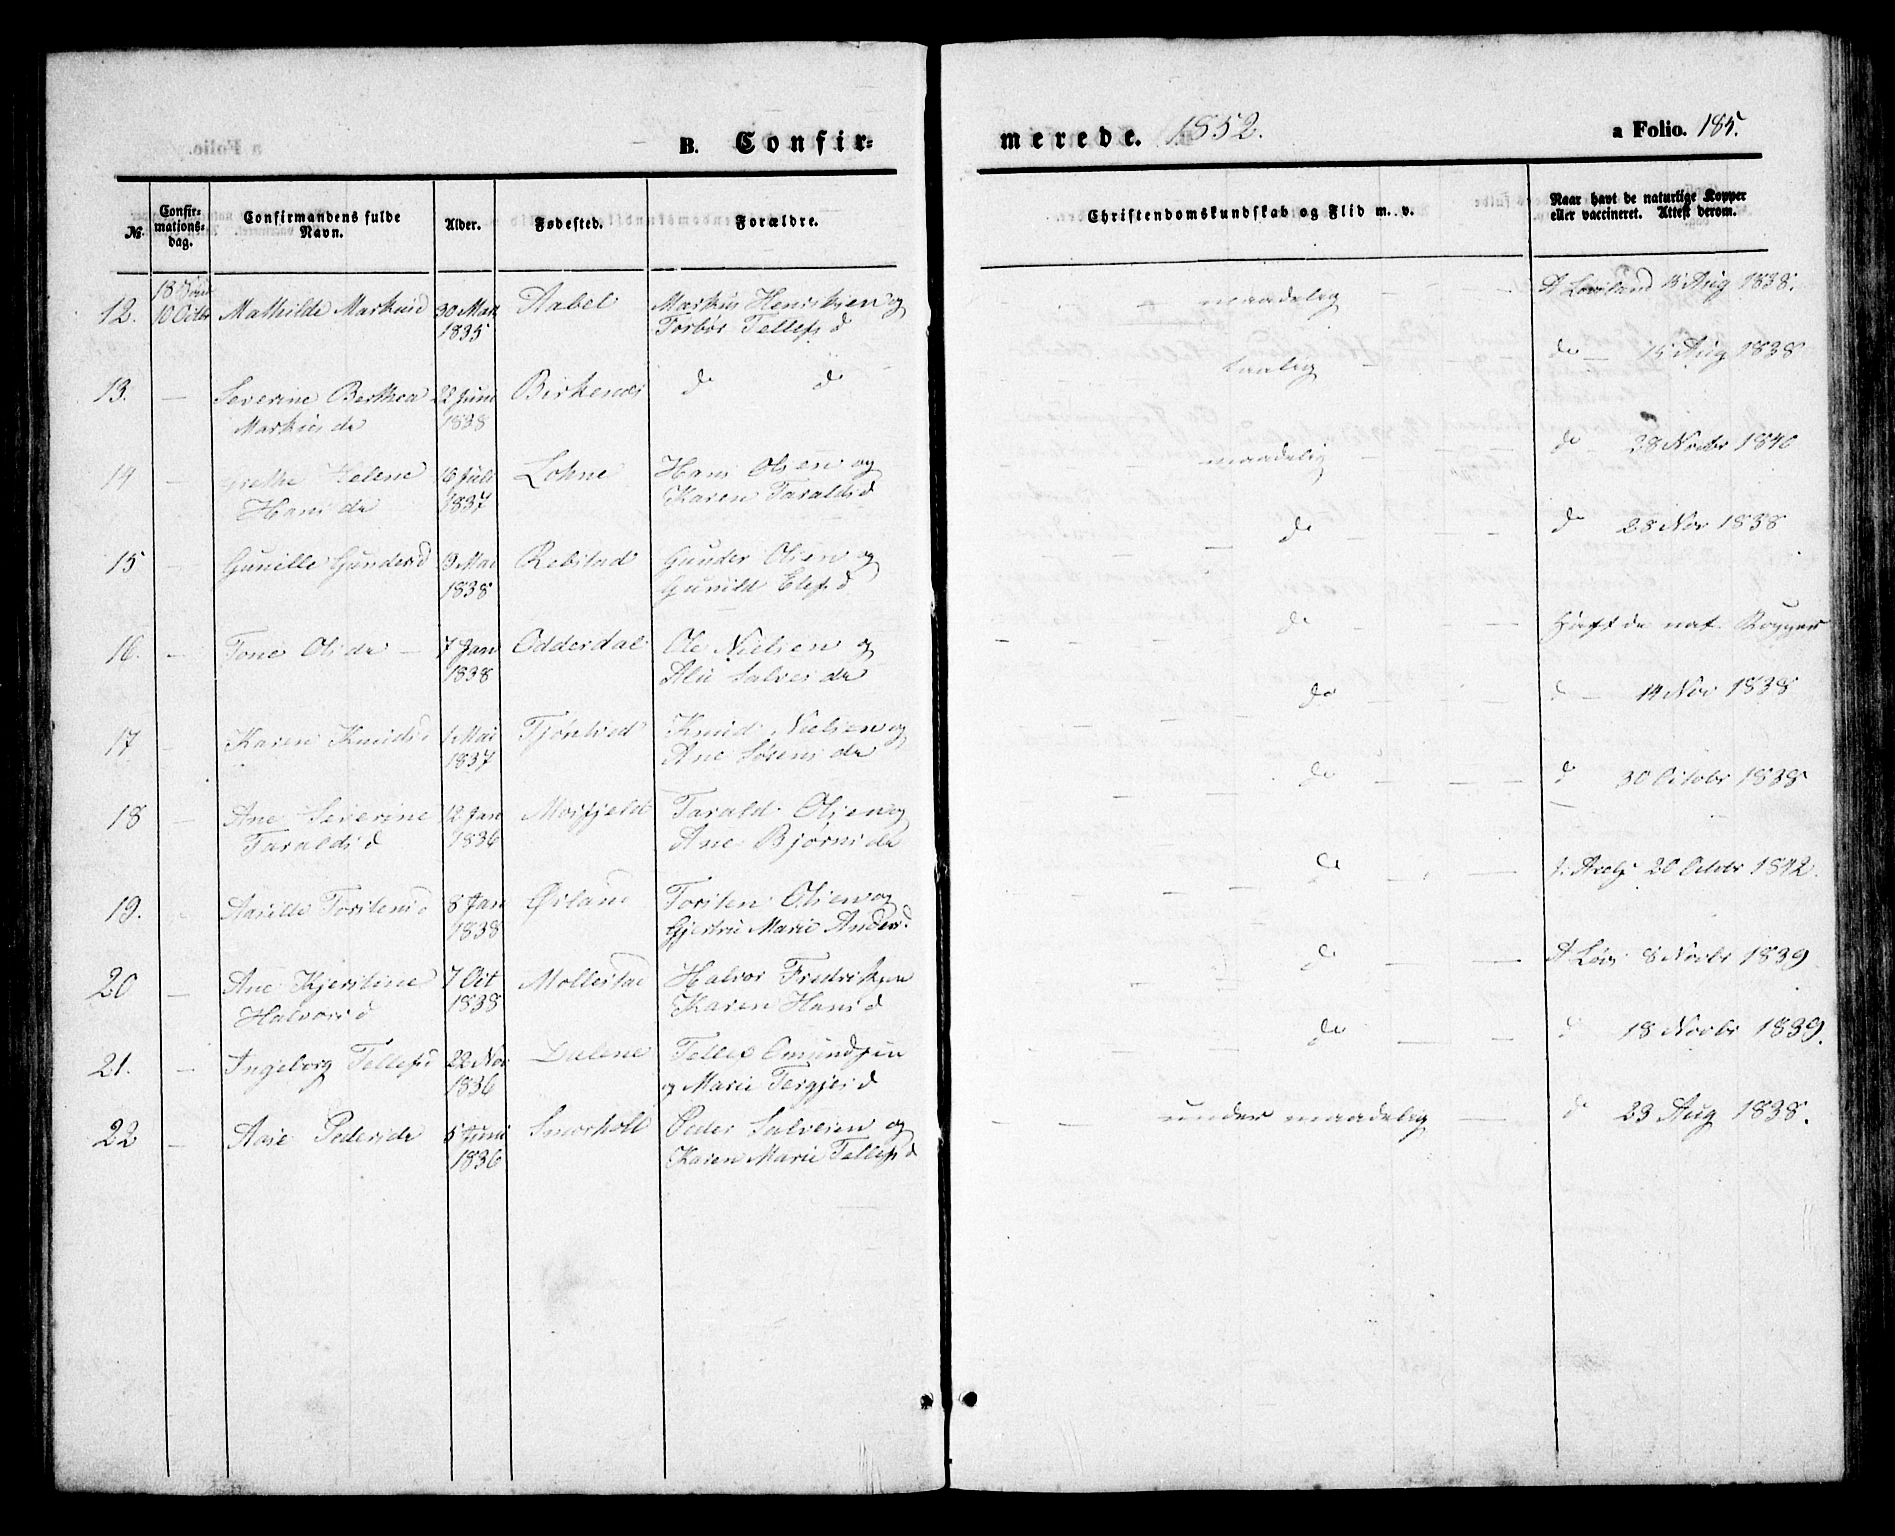 B. Confir-
merede. 1852.
a Folio. 185.
№.
Confir-
mations-
dag.
Confirmandens fulde
Navn.
Alder.
Fødested.
Forældre.
Christendomskundskab og Flid m. v.
Naar havt de naturlige Kopper
eller vaccineret. Attest derom.
12. 10 Octbr Mathilde Markusd 30 Mai 1835 Aabel Markus Henriksen og
Torbør Tellefsd
maadelig 15 Aug 1838.
13. — Severine Berthea 22 Juni 1838 Birkenæs d d
Markusda
taalig do 15 Aug 1838
14 — Grethe Helene 16 Juli 1837 Lohne Hans Olsen og
Hansda Karen Taraldsd
maadelig do 28 Novbr 1840
15 — Gunille Gundersd 3 Mai 1838 Rebstad Gunder Olsen og
Gunild Elefsd
do d 28 Nov 1838
16. — Tone Olsda 7 Jan 1838 Odderdal Ole Nielsen og
Salvesda
do Havt de nat. Kopper
17 — Karen Knudsd Mai 1837 Knud Nielsen og
Ane Sørensda
do d 14 Nov 1838
18 — Ane Severine 12 Jan 1836 Mosfjeld Tarald Olsen og
Taraldsd Ane Bjørnsda
do d 30 Octobr 1838
19. Torstensd 8 Jan 1838 Torsten Olsen og
Marie Andersd.
do 20 Octobr 1842.
20 — Ane Kjerstine 7 Oct 1838 Mollestad Halvor Fredriksen
Halvorsd Karen Hansd
do 8 Novbr 1839
21. — Ingeborg Tellefsd 22 Nov 1836 Dalene Tellef Omundsen
og Marie Tergjesd
do d 18 Novbr 1839.
22 — Aase Pedersda 5 Juni 1836 Peder Salvesen og
Karen Marie Tellefsd
under maadelig — d 23 Aug 1838.